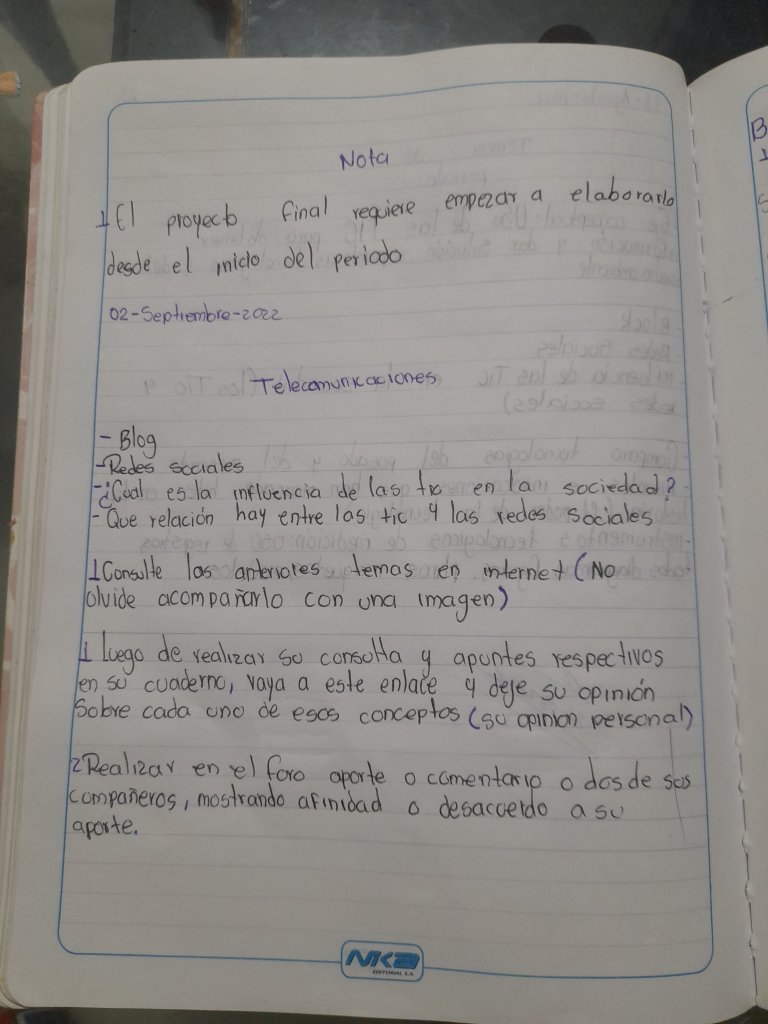 Nota
1 El proyecto final requiere empezar a elaborarlo
desde el inicio del periodo
02-Septiembre-2022
Telecomunicaciones
- Blog
- Redes sociales
- ¿Cual es la influencia de las tic en la sociedad?
- Que relación hay entre las tic y las redes sociales
1 Consulte los anteriores temas en internet (No
olvide acompañarlo con una imagen)
1 luego de realizar su consulta y apuntes respectivos
en su cuaderno, vaya a este enlace y deje su opinión
sobre cada uno de esos conceptos (su opinion personal)
2 Realizar en el foro aporte o comentario a dos de sus
compañeros, mostrando afinidad o desacuerdo a su
aporte.
NKA
EDITORIAL S.A.